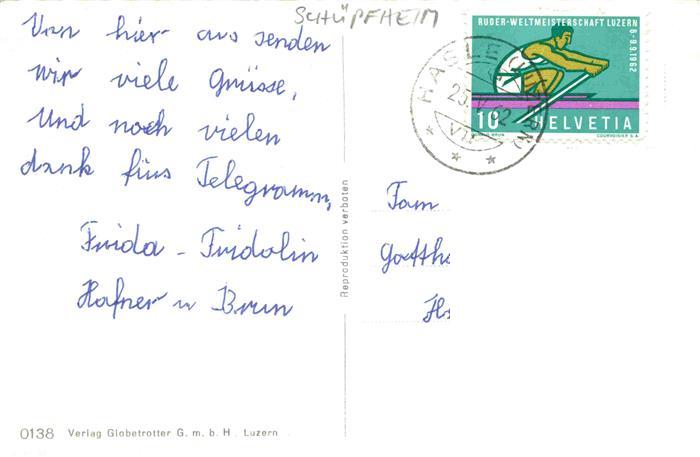 SCHÜPFHEIM
Von hier aus senden
wir viele Grüsse,
Und noch vielen
dank fürs Telegramm,
Frida - Fridolin
Hafner u Brun
0138 Verlag Globetrotter G. m. b. H. Luzern
Reproduktion verboten
RUDER-WELTMEISTERSCHAFT LUZERN
6-9.9.1962
10
HELVETIA
COURVOISIER S.A.
HASLE
25. V 62
Fam
Gottha